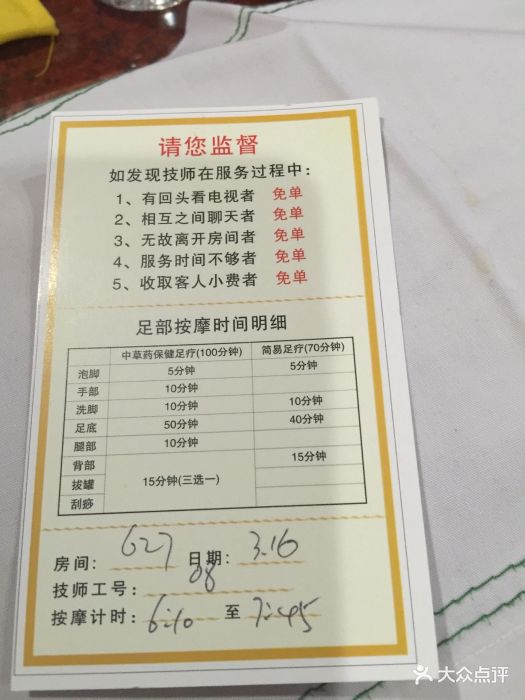 请您监督
如发现技师在服务过程中：
1、有回头看电视者 免单
2、相互之间聊天者 免单
3、无故离开房间者 免单
4、服务时间不够者 免单
5、收取客人小费者 免单
足部按摩时间明细
中草药保健足疗(100分钟) 简易足疗(70分钟)
泡脚 5分钟 5分钟
手部 10分钟
洗脚 10分钟 10分钟
足底 50分钟 40分钟
腿部 10分钟
背部 15分钟
拔罐 15分钟(三选一)
刮痧
房间： 627 日期： 3.16
技师工号： 08
按摩计时： 6:10 至 7:45
大众点评